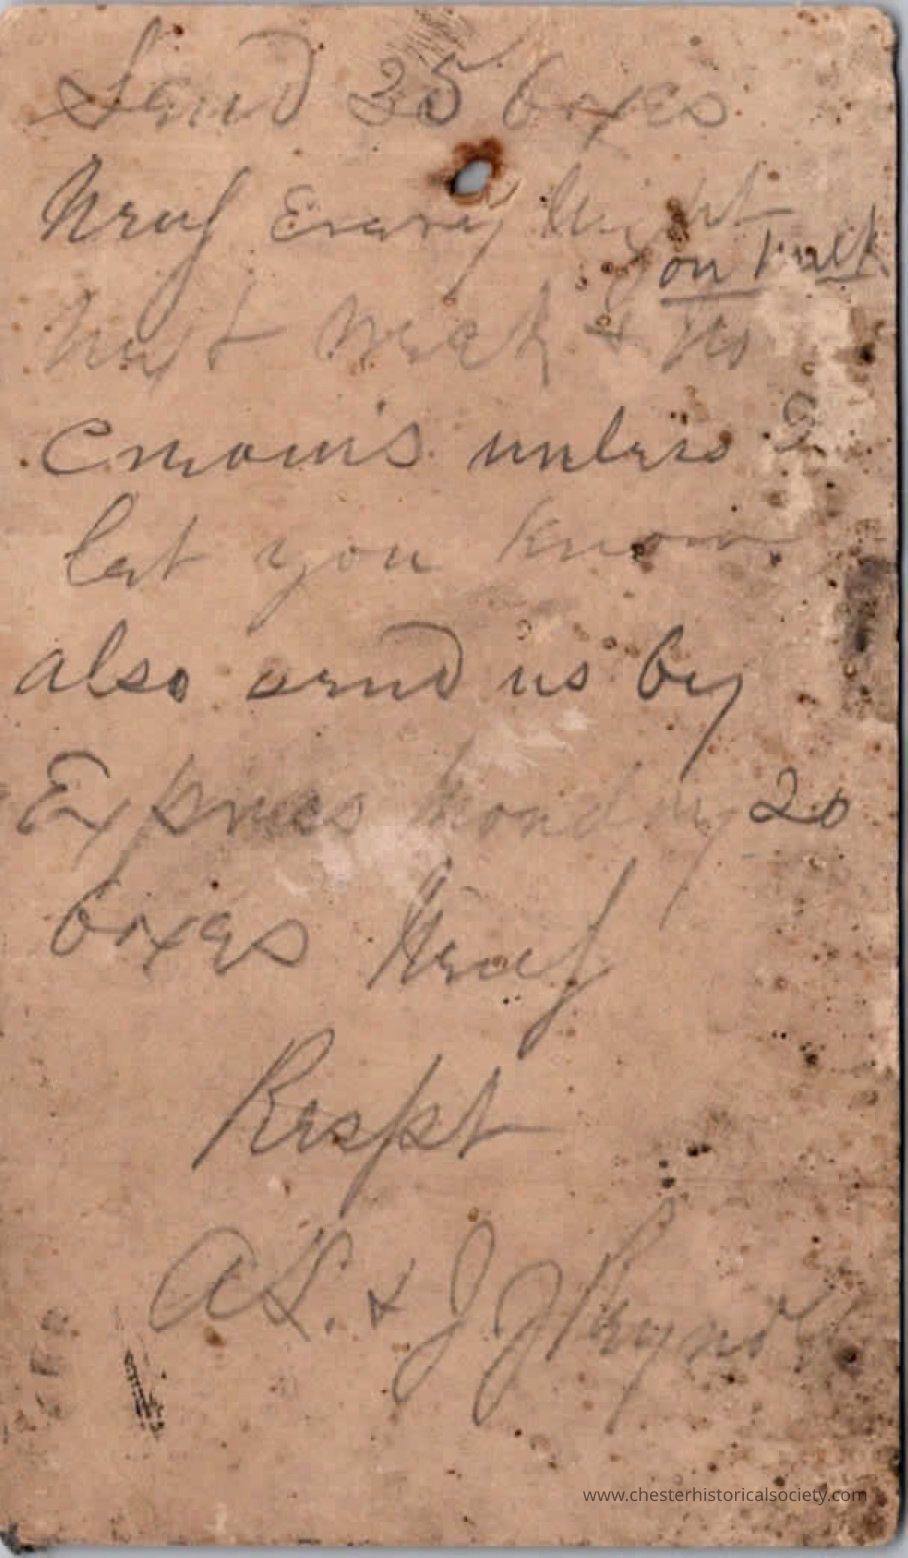 Send 25 boxes
Neuf Every Night
on Milk
next week & No
creams unless I
let you know.
also send us by
Express Monday 20
boxes Neuf
Respt
A L. & J J Reynolds
www.chesterhistoricalsociety.com